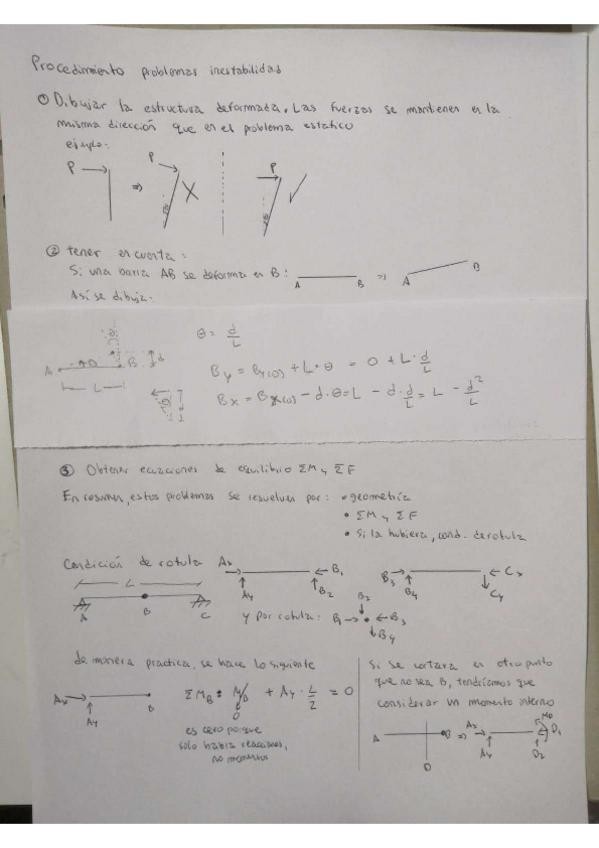 Procedimiento problemas inestabilidad
① Dibujar la estructura deformada. Las fuerzas se mantienen en la
misma dirección que en el problema estático
ejemplo:
P ⇒ P P
② tener en cuenta:
Si una barra AB se deforma en B: A B ⇒ A B
Así se dibuja:
A θ B d
L
θ = d/L
By = By(0) + L·θ = 0 + L·d/L
Bx = Bx(0) - d·θ = L - d·d/L = L - d²/L
③ Obtener ecuaciones de equilibrio ΣM y ΣF
En resumen, estos problemas se resuelven por: • geometría
• ΣM y ΣF
• Si la hubiera, cond. de rotula
Condición de rotula
L
A B C
Ax Ay B1 B2
B3 B4 Cx Cy
y por rotula: B1 B2 B3 B4
de manera practica, se hace lo siguiente
Ax Ay B
ΣMB = MB + Ay · L/2 = 0
0
es cero porque
solo habia reacciones,
no momentos
Si se cortara en otro punto
que no sea B, tendríamos que
considerar un momento interno
A B D ⇒ Ax Ay MD D1 D2